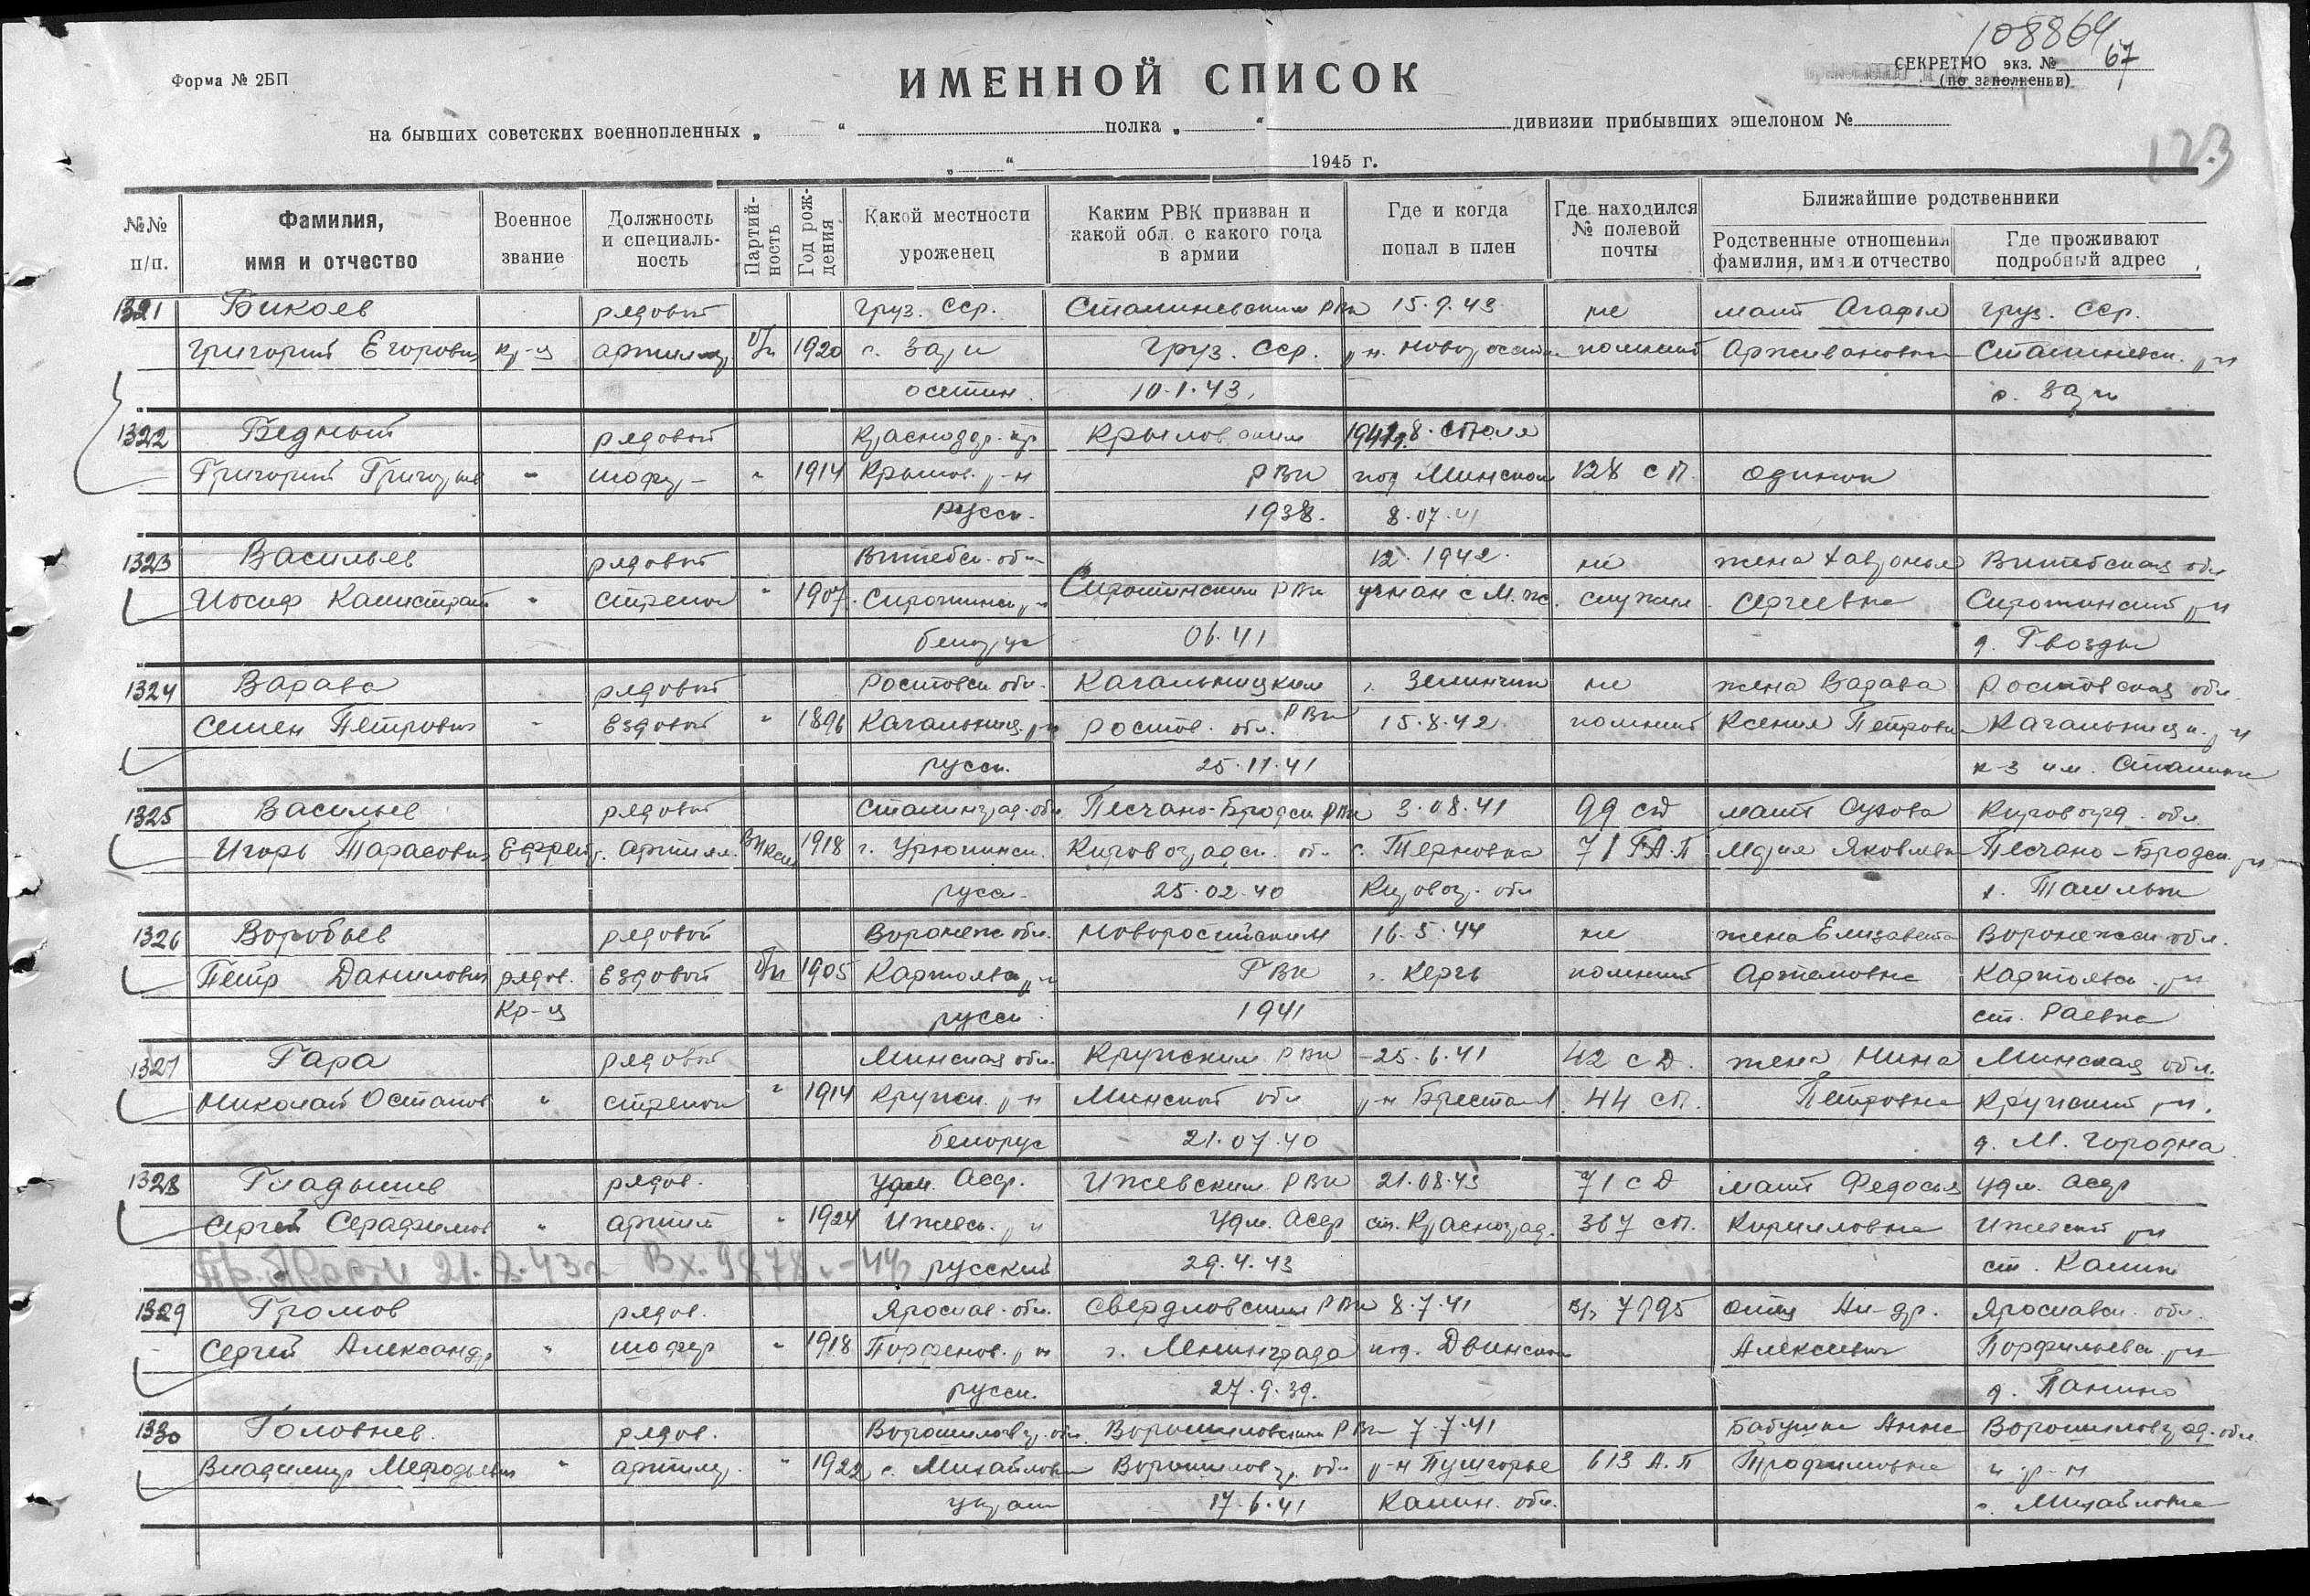 108864
Форма № 2БП
СЕКРЕТНО экз. № 67
(по заполнении)
ИМЕННОЙ СПИСОК
на бывших советских военнопленных „ “ полка „ “ дивизии прибывших эшелоном №
„ “ 1945 г.
123
№№ п/п.
Фамилия, имя и отчество
Военное звание
Должность и специаль-ность
Партий-ность
Год рож-дения
Какой местности уроженец
Каким РВК призван и какой обл. с какого года в армии
Где и когда попал в плен
Где находился № полевой почты
Ближайшие родственники
Родственные отношения фамилия, имя и отчество
Где проживают подробный адрес
1321 Бикоев рядовой Груз. ССР. Сталиневским РВК 15.9.43 не мать Агафья Груз. ССР.
Григорий Егорович кр-ц б/п 1920 с. Груз. ССР. р-н помнит Сталиневск. р-н
осетин. 10.1.43.
1322 Бедный рядовой Краснодар. кр Крыловским
Григорий - шофер - " 1914 Крылов. р-н РВК под Минском 128 сп одинок
русск. 1938. 8.07.41
1323 Васильев рядовой Витебск. обл 12.1942. не жена Витебская обл
Иосиф " стрелок " 1907 Сиротинск. р-н Сиротинским РВК служил Сергеевна Сиротинский р-н
белорус 06.41 д. Гвозды
1324 Варава рядовой Ростовск обл. Кагальницким не жена Варава Ростовская обл.
Семен Петрович - Ездовой " 1896 Кагальниц. р-н Ростов. обл. РВК 15.8.42 помнит Ксения Петровн Кагальницк. р-н
русск. 25.11.41 к-з им. Сталина
1325 Васильев рядовой Сталинград. обл Песчано-Бродск РВК 3.08.41 99 сд мать Кировогр. обл.
Игорь Тарасович Ефрейт. артилл. ВЛКСМ 1918 г. Урюпинск. Кировоградск. об. с. Терновка 71 ГАП Мария Яковлевн Песчано-Бродск. р-н
русс. 25.02.40 Кировог. обл
1326 Воробьев рядовой Воронеж обл. Новоросийским 16.5.44 не жена Елизавета Воронежск обл.
Петр Данилович рядов. Ездовой б/п 1905 р-н ГВК г. Керчь помнит Артемовна р-н
Кр-ц русск. 1941 ст. Раевка
1327 Гара рядовой Минская обл. Крупским РВК 25.6.41 42 сД. жена Нина Минская обл.
Николай Остапов " стрелок " 1914 Крупск. р-н Минской обл р-н Бреста 44 сп. Петровна Крупский р-н.
белорус 21.07.40 д. М. Городна
1328 Гладышев рядов. Удм. Асср. Ижевским РВК 21.08.43 71 сД мать Федосья Удм. асср
Сергей Серафимов " артил " 1924 Ижевск. р-н Удм. Асср ст. Красноград. 367 сп. Кирилловна Ижевский р-н
21.8.43г Вх. 9878 русский 29.4.43
1329 Громов рядов. Ярослав. обл. Свердловским РВК 8.7.41 в/ч 7995 отец Ал-др. Ярославск. обл.
Сергей Александр " шофер " 1918 р-н г. Ленинграда под. Двинском Алексеевич р-н
русск. 27.9.39. д. Панино
1330 Головнев. рядов. Ворошиловгр. обл. Ворошиловским РВК 7.7.41 бабушка Анна Ворошиловград. обл
Владимир Мефодьевич " артилер. " 1922 с. Михайловка Ворошиловгр. обл р-н Пушгорье 613 А.П Трофимовна и р-н
украи 17.6.41 Калин. обл. с. Михайловка